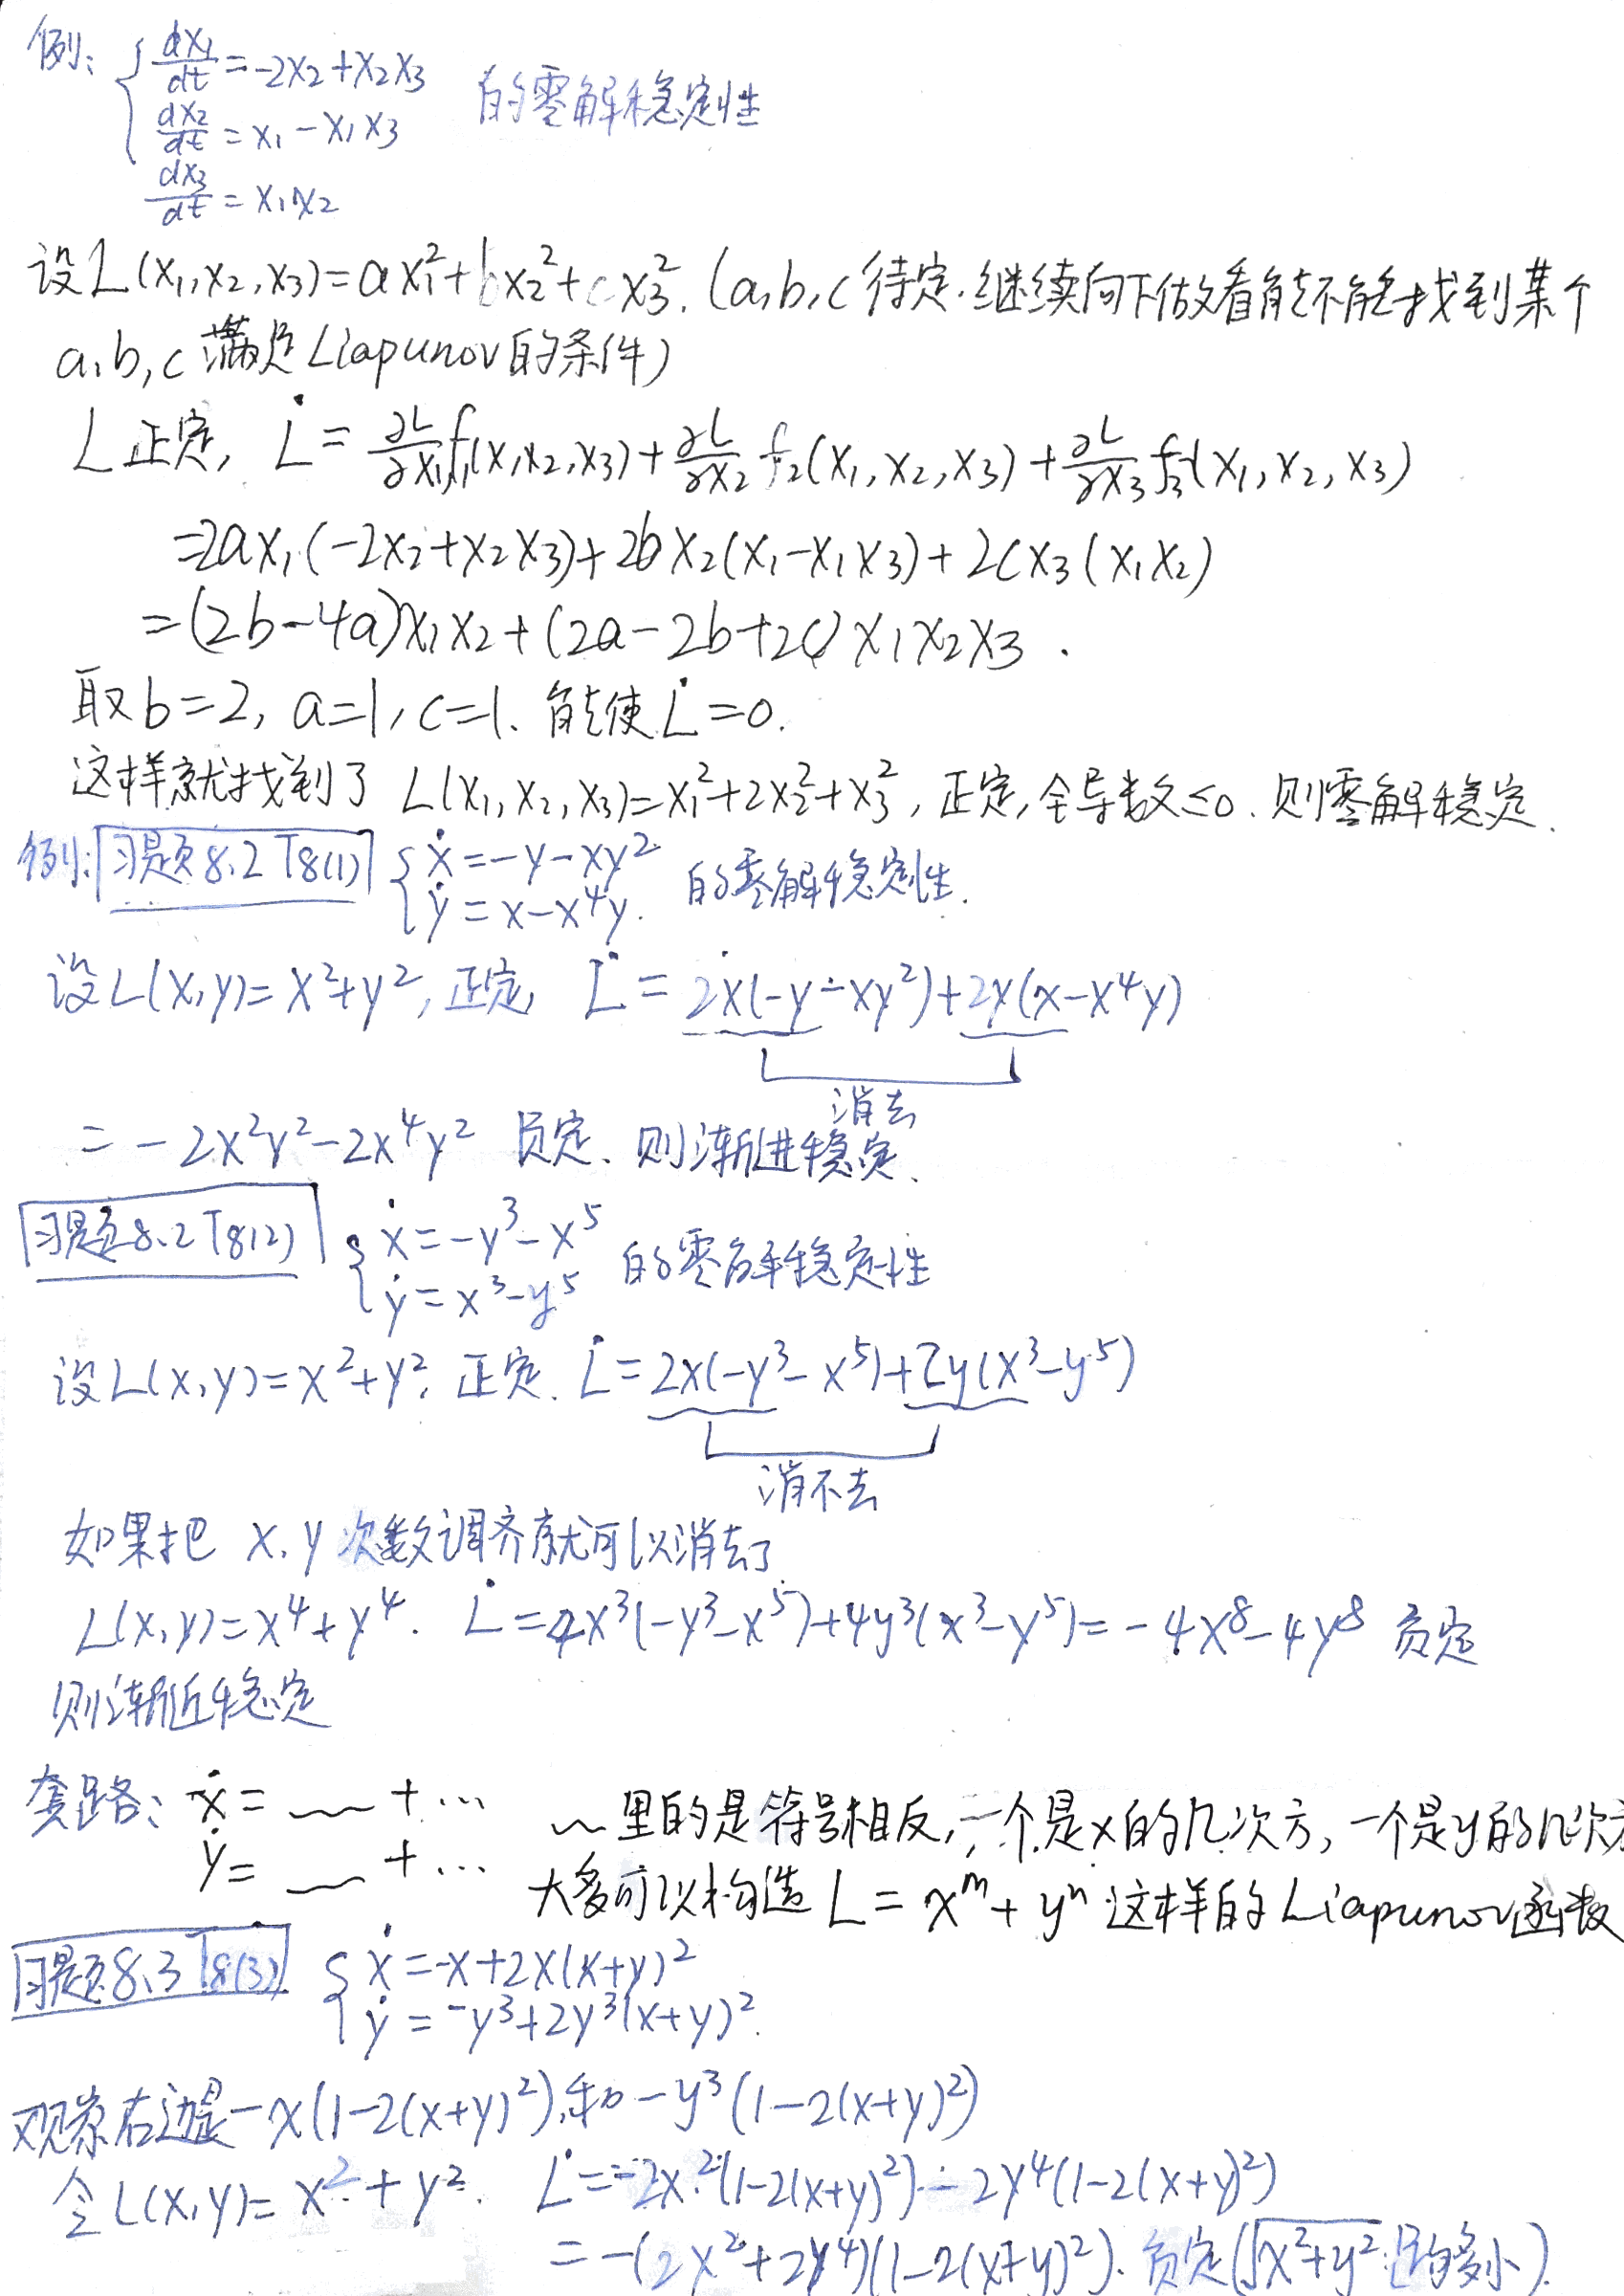 例: { dx₁/dt = -2x₂+x₂x₃ 的零解稳定性
dx₂/dt = x₁-x₁x₃
dx₃/dt = x₁x₂
设L(x₁,x₂,x₃)=ax₁²+bx₂²+cx₃². (a,b,c待定.继续向下做看能不能找到某个
a,b,c满足Liapunov的条件)
L正定, L̇ = ∂L/∂x₁ f₁(x₁,x₂,x₃)+∂L/∂x₂ f₂(x₁,x₂,x₃)+∂L/∂x₃ f₃(x₁,x₂,x₃)
=2ax₁(-2x₂+x₂x₃)+2bx₂(x₁-x₁x₃)+2cx₃(x₁x₂)
=(2b-4a)x₁x₂+(2a-2b+2c)x₁x₂x₃.
取b=2, a=1, c=1. 能使L̇=0.
这样就找到了 L(x₁,x₂,x₃)=x₁²+2x₂²+x₃², 正定,全导数≤0. 则零解稳定.
例: 习题8.2 T8(1) { ẋ=-y-xy² 的零解稳定性.
ẏ=x-x⁴y.
设L(x,y)=x²+y²,正定, L̇ = 2x(-y-xy²)+2y(x-x⁴y)
消去
= -2x²y²-2x⁴y² 负定. 则渐进稳定.
习题8.2 T8(2) { ẋ=-y³-x⁵ 的零解稳定性
ẏ=x³-y⁵
设L(x,y)=x²+y². 正定. L̇=2x(-y³-x⁵)+2y(x³-y⁵)
消不去
如果把 x.y 次数调齐就可以消去了.
L(x,y)=x⁴+y⁴. L̇=4x³(-y³-x⁵)+4y³(x³-y⁵)=-4x⁸-4y⁸ 负定
则渐近稳定
套路: ẋ= ﹏ +… ﹏里的是符号相反,一个是x的几次方,一个是y的几次方
ẏ= ﹏ +… 大多可以构造 L=xᵐ+yⁿ 这样的Liapunov函数
习题8.3 T8(3) { ẋ=-x+2x(x+y)²
ẏ=-y³+2y³(x+y)².
观察右边是-x(1-2(x+y)²),和-y³(1-2(x+y)²)
令L(x,y)=x²+y². L̇=-2x²(1-2(x+y)²)-2y⁴(1-2(x+y)²)
=-(2x²+2y⁴)(1-2(x+y)²). 负定(√x²+y² 足够小).